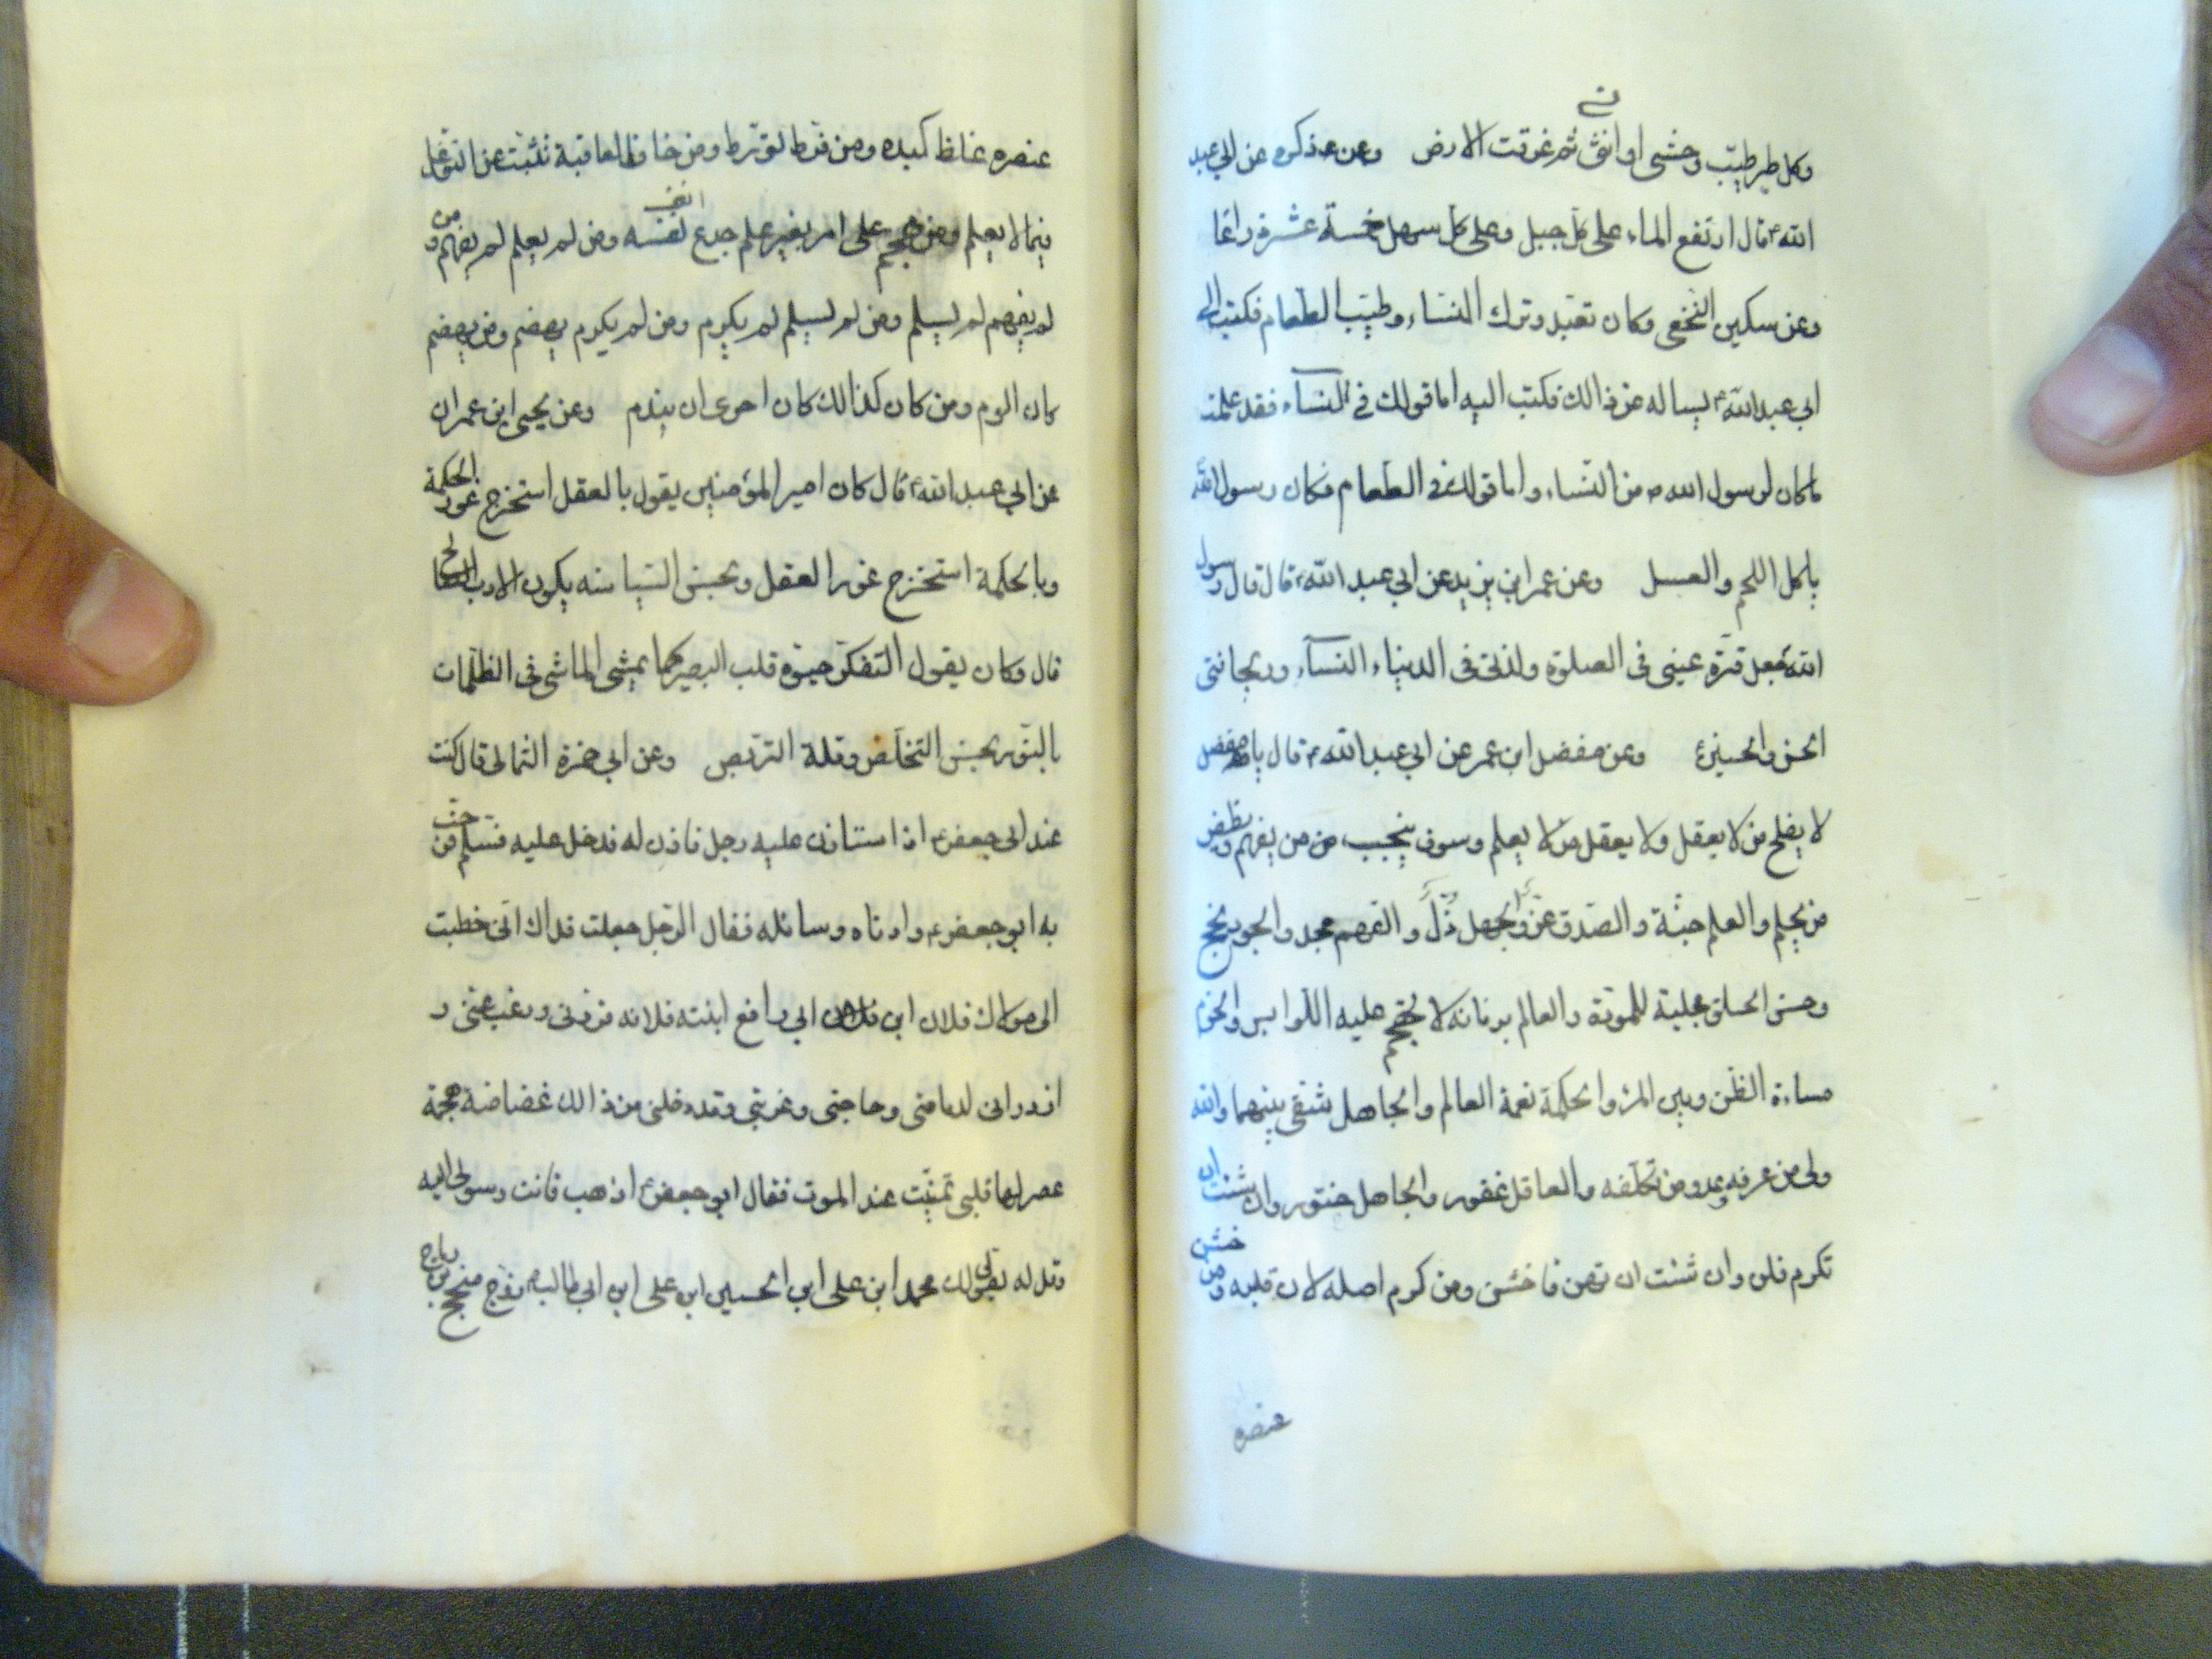 وكل طير طيب وحشى او انثى ثم غرقت الارض وعن عدذكره عن ابي عبد
الله ع قال ارتفع الماء على كل جبل وعلى كل سهل خمسة عشرة راعا
وعن سكين النخعى وكان تعبد وترك النساء وطيب الطعام فكتب الى
ابي عبدالله ع يساله عن ذالك فكتب اليه اما قولك فى النساء فقد علمت
ماكان لرسول الله ص من النساء واما قولك فى الطعام فكان رسول الله
ياكل اللحم والعسل وعن عمر ابن يزيد عن ابي عبد الله ع قال قال رسول
الله جعل قرة عينى فى الصلوة ولذتى فى الدنياء النسآء وريحانتى
الحسن والحسين ع وعن مفضل ابن عمر عن ابي عبد الله ع قال يا مفضل
لا يفلح من لا يعقل ولا يعقل من لا يعلم وسوف ينجيب من من يفهم ويظفر
من يحلم والعلم جنة والصدق عزّ والجهل ذلّ والفهم مجد والجود نجح
وحسن الخلق مجلبة للمودة والعالم بزمانه لا يهجم عليه اللوابس والحزم
مساءة الظن وبين المرء والحكمة نعمة العالم والجاهل شقى بينهما والله
ولى من عرفه وعدو من تكلفه والعاقل غفور والجاهل ختور وان شئت ان
تكرم فلن وان شئت ان تهن فاخشن ومن كرم اصله لان قلبه ومن خشن
عنصره
عنصره غلظ كبده ومن فرط تورط ومن خاف العاقبة تثبت عن التوغل
فيما لا يعلم ومن هجم على امر بغير علم جدع انف نفسه ومن لم يعلم لم يفهم ومن
لم يفهم لم يسلم ومن لم يسلم لم يكرم ومن لم يكرم يهضم ومن يهضم
كان الوم ومن كان كذالك كان احرى ان يندم وعن يحيى ابن عمران
عن ابي عبد الله ع قال كان امير المؤمنين يقول بالعقل استخرج غور الحكمة
وبالحكمة استخرج غور العقل وبحسن السياسه يكون الادب الصالح
قال وكان يقول التفكر حيوة قلب البصير كما يمشى الماشى فى الظلمات
بالنور بحسن التخلص وقلة التربص وعن ابي حمزة الثمالى قال كنت
عند ابى جعفر ع اذا ستاذن عليه رجل فاذن له فدخل عليه فسلم فرحب
به ابو جعفر ع وادناه وسائله فقال الرجل جعلت فداك انى خطبت
الى مولاك فلان ابن ابي رافع ابنته فلانه فردنى ورغب عنى و
ازدرانى لدمامتى وحاجتى وغربتى وقد دخلنى من ذالك غضاضة هجمة
عصر لها قلبى تمنيت عند الموت فقال ابو جعفر ع اذهب فانت رسولى اليه
وقل له يقول لك محمد ابن على ابن الحسين ابن على ابن ابي طالب ع زوج منجح بن رباح